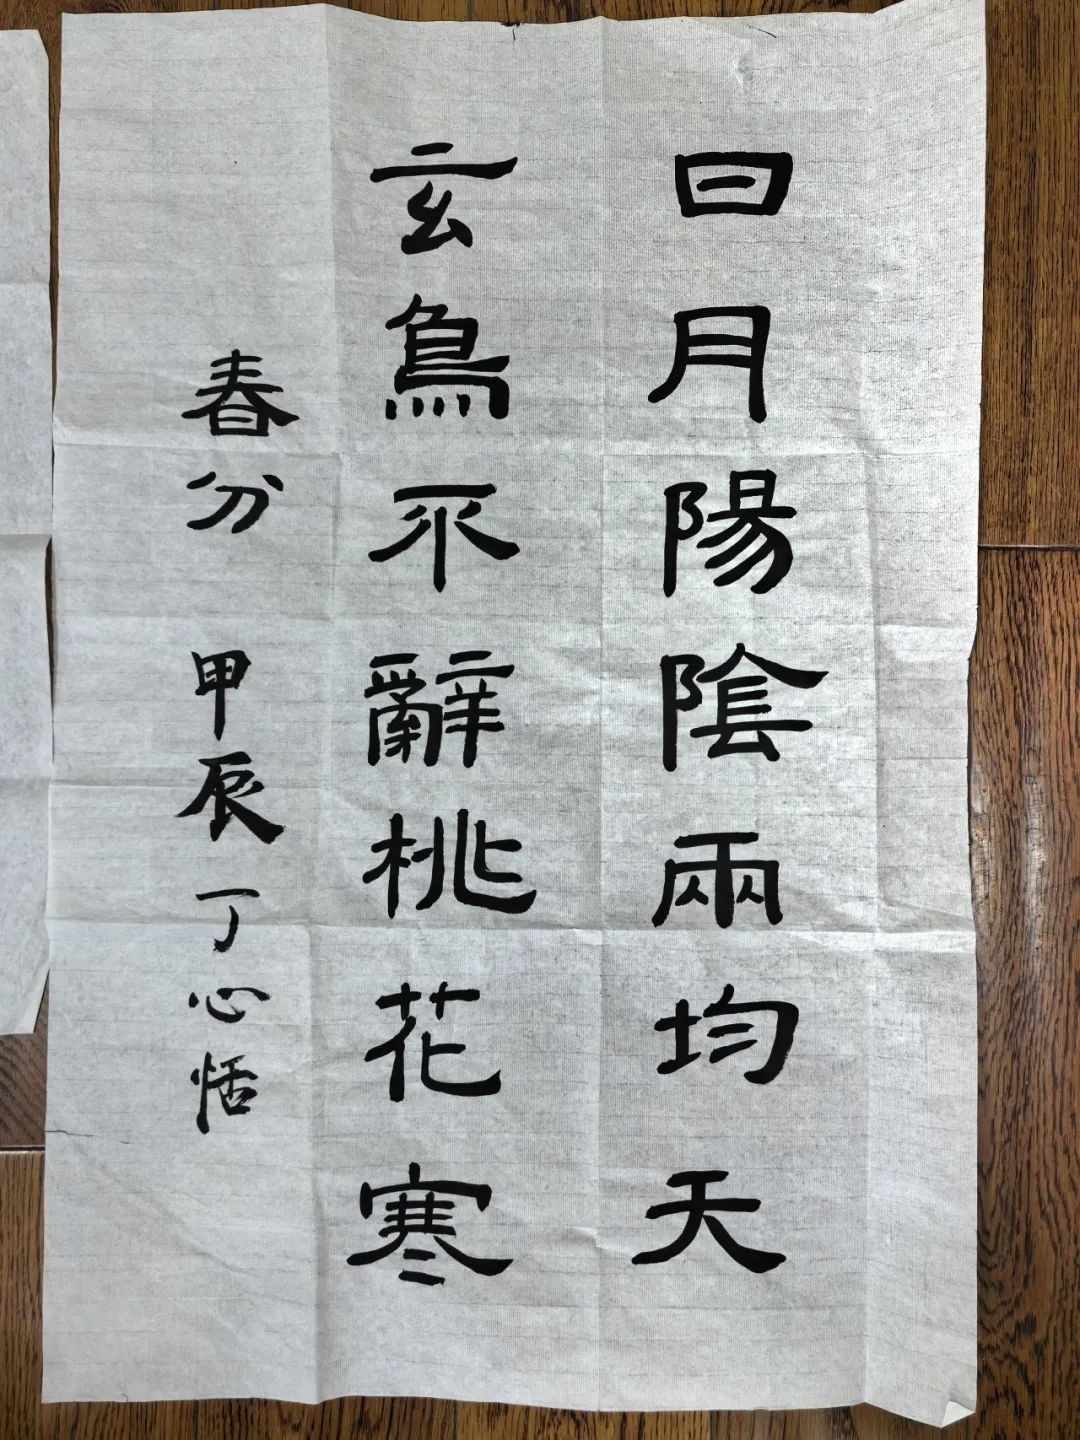 日月陽陰兩均天
玄鳥不辭桃花寒
春分 甲辰丁心恬